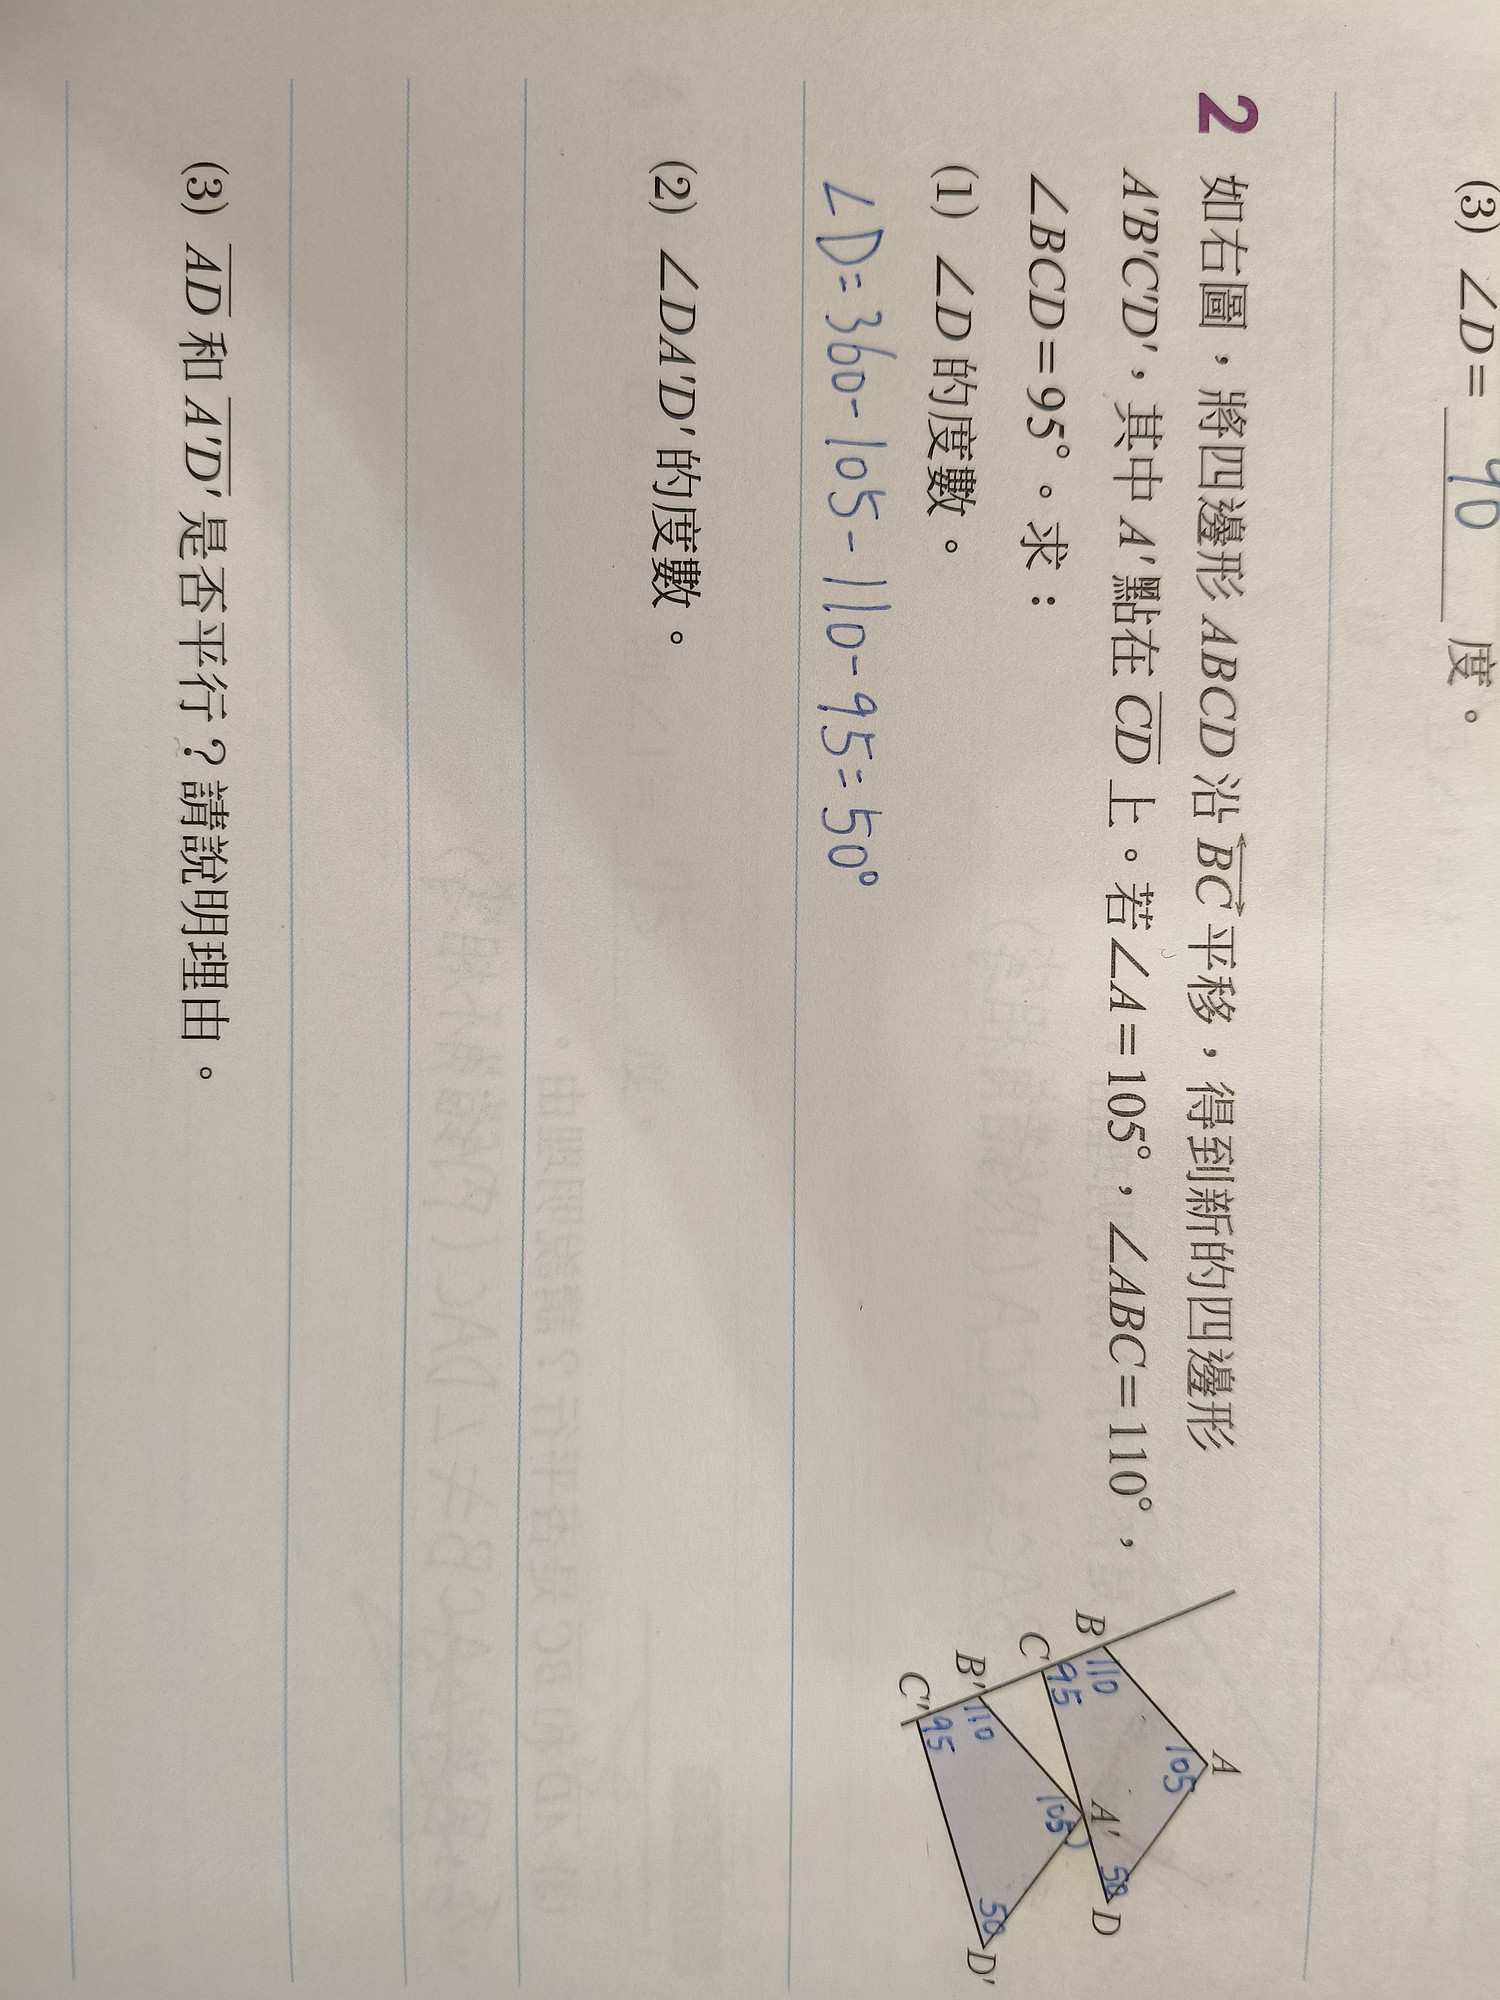 (3) ∠D= 90 度。
2 如右圖，將四邊形 ABCD 沿 BC 平移，得到新的四邊形
A'B'C'D'，其中 A' 點在 CD 上。若∠A=105°，∠ABC=110°，
∠BCD=95°。求：
(1) ∠D 的度數。
∠D=360-105-110-95=50°
(2) ∠DA'D' 的度數。
(3) AD 和 A'D' 是否平行？請說明理由。
A
105
B
110
C
95
A'
105
50
D
B'
110
C'
95
50
D'